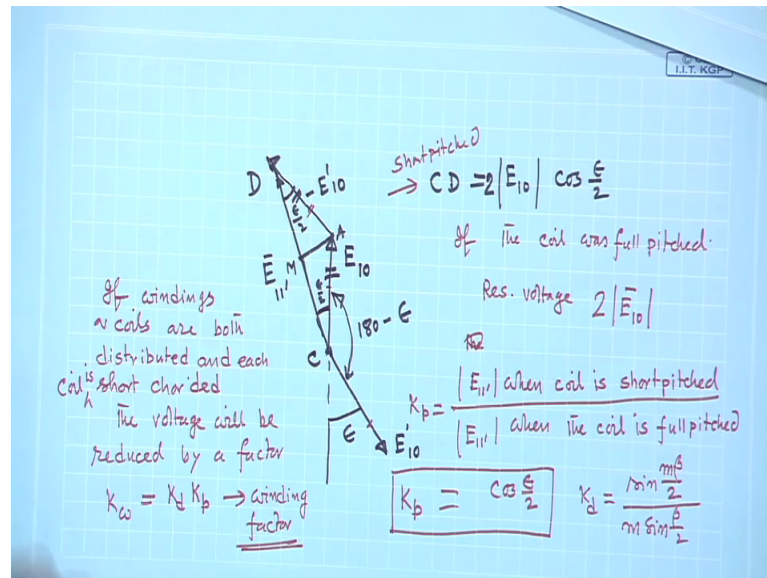 I.I.T. KGP
Shortpitched
→ CD = 2|E₁₀| cos ϵ/2
If the coil was full pitched.
Res. voltage 2|E̅₁₀|
Kp = |E₁₁'| when coil is shortpitched / |E₁₁'| when the coil is fullpitched
Kp = cos ϵ/2
Kd = sin mβ/2 / m sin β/2
D
-E'₁₀
ϵ/2
A
E₁₁'
M
E₁₀
ϵ/2
180 - ϵ
C
ϵ
E'₁₀
If windings
coils are both
distributed and each
coil is short chorded
The voltage will be
reduced by a factor
Kω = Kd Kp → winding
factor